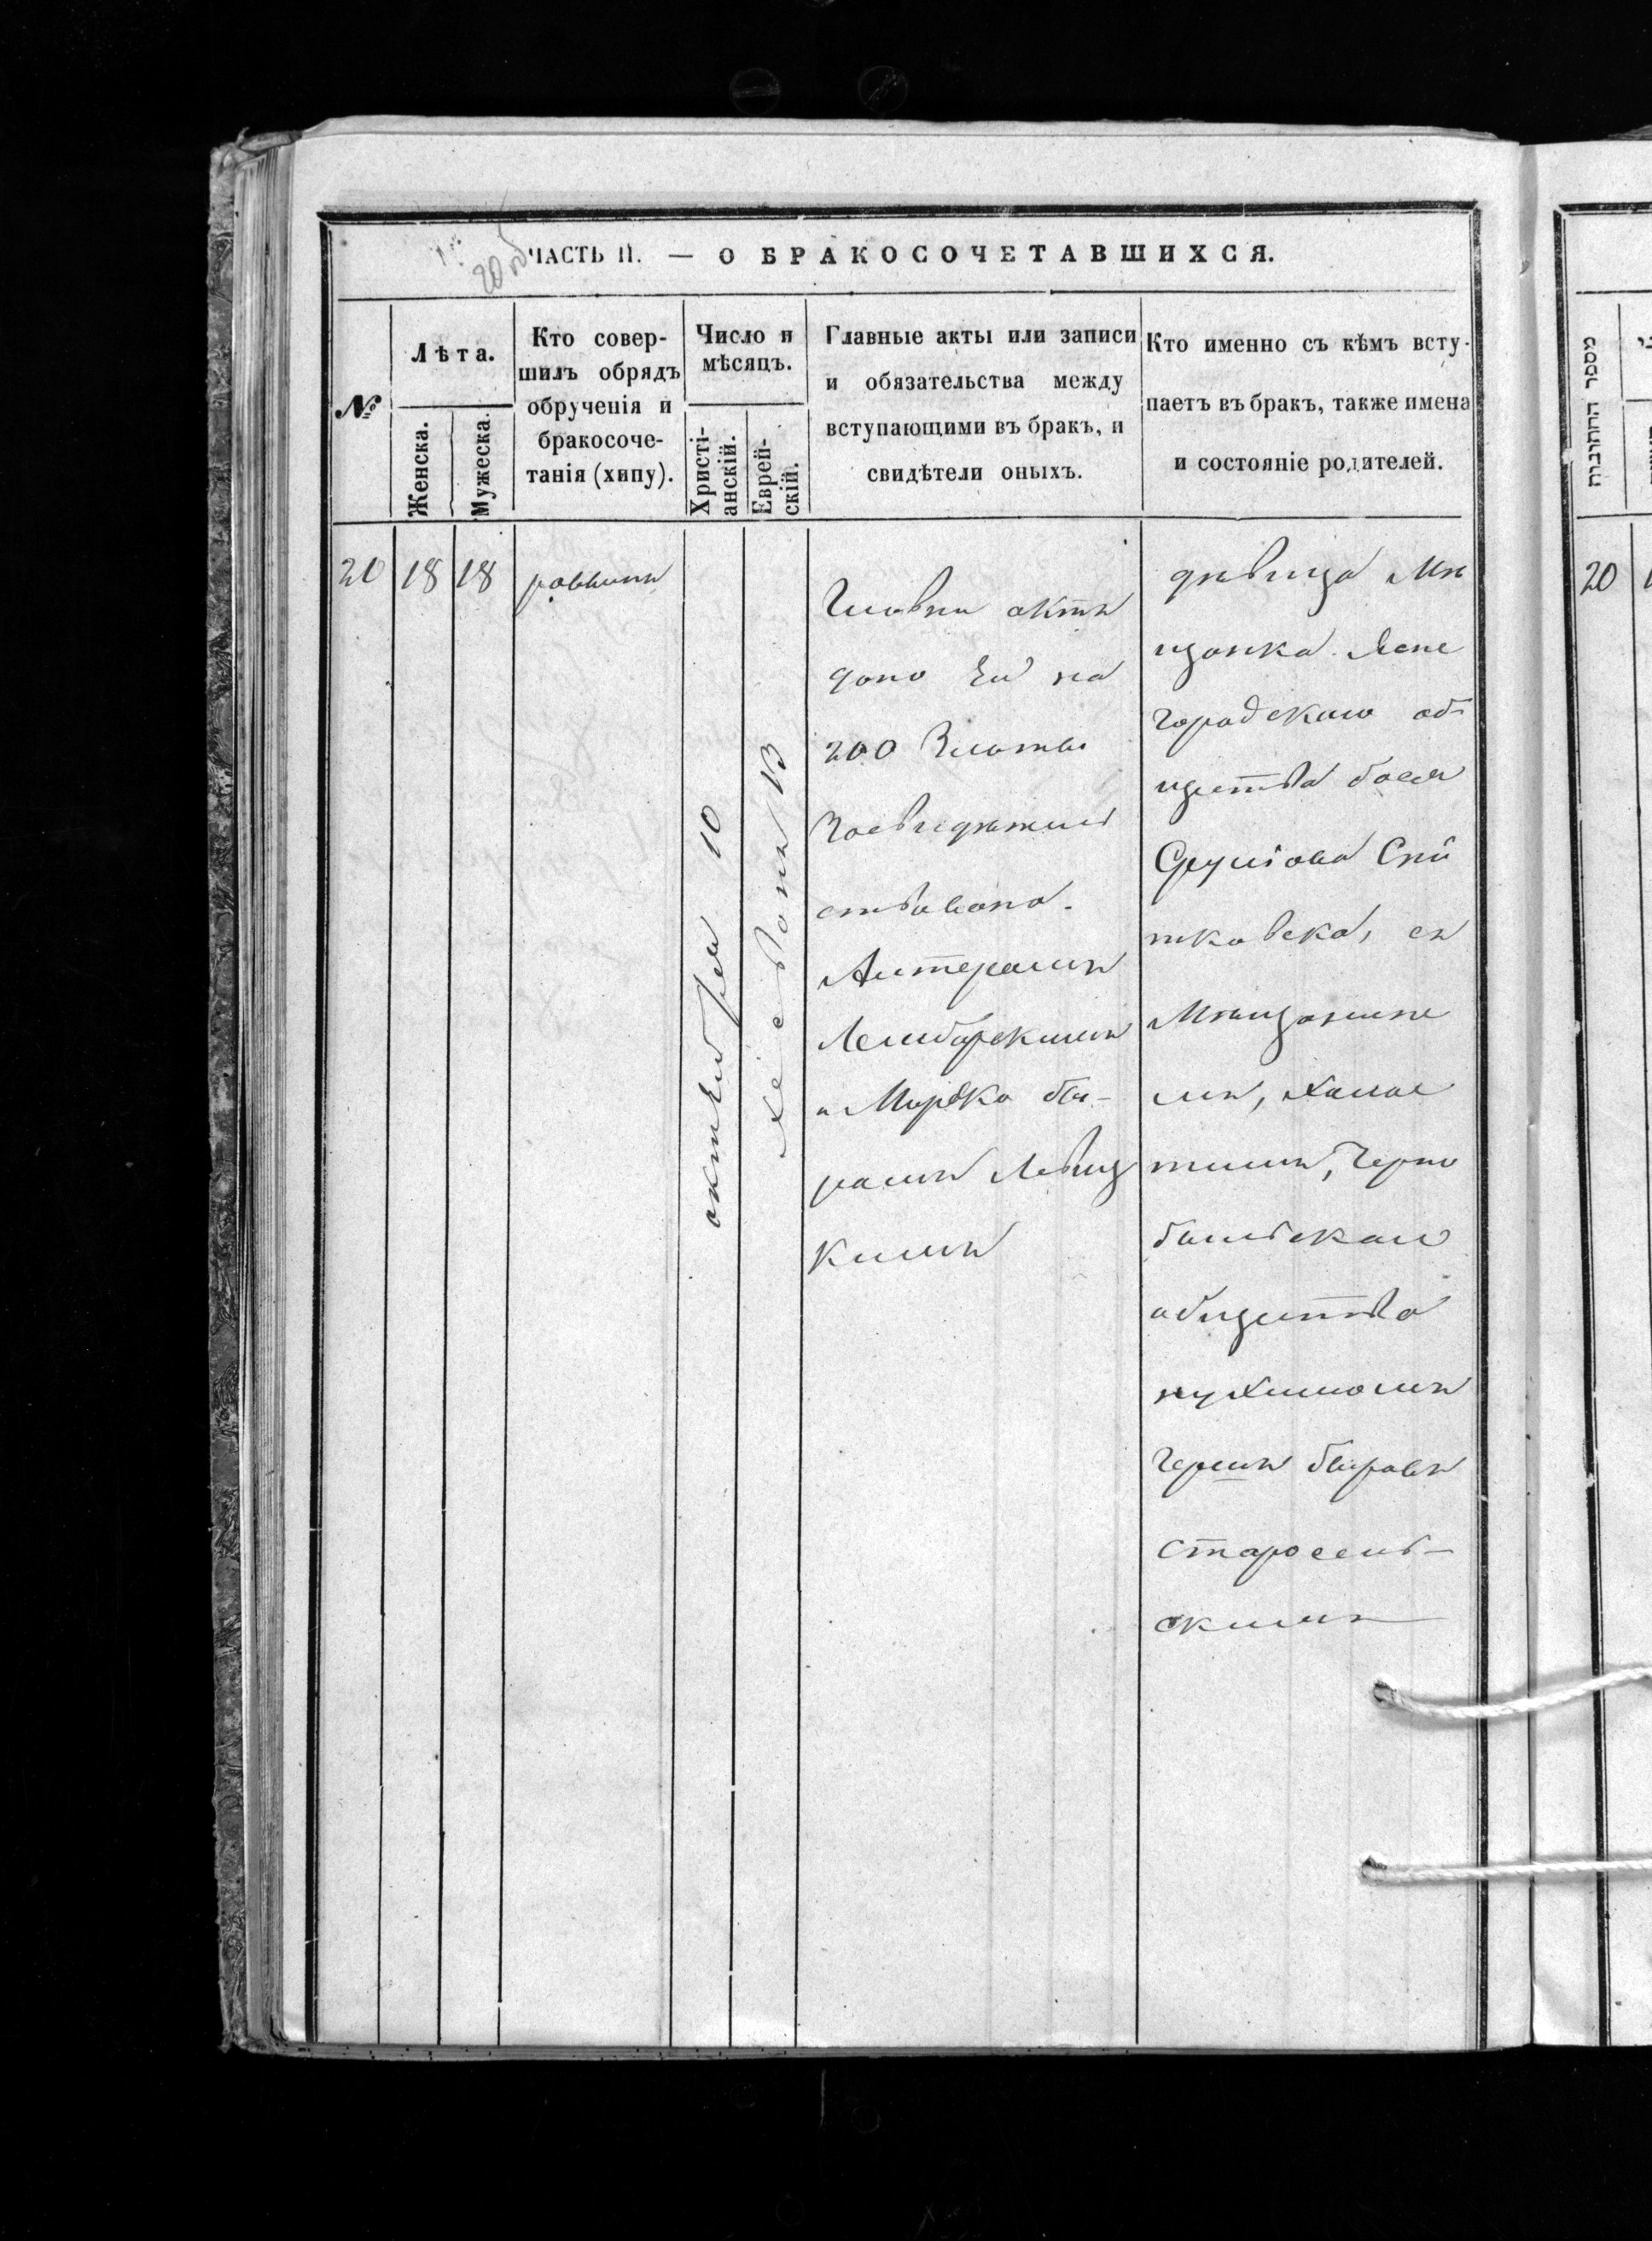 20 об
ЧАСТЬ II. — О БРАКОСОЧЕТАВШИХСЯ.
№
Лѣта.
Женска.
Мужеска.
Кто совер-
шилъ обрядъ
обрученія и
бракосоче-
танія (хипу).
Число и
мѣсяцъ.
Христі-
анскій.
Еврей-
скій.
Главные акты или записи
и обязательства между
вступающими въ бракъ, и
свидѣтели оныхъ.
Кто именно съ кѣмъ всту-
паетъ въ бракъ, также имена
и состояніе родителей.
20
18
18
раввинъ
октября 10
хесвонъ 13
Главни актъ
дано Ей на
200 Злоты
Засвидѣтель
ствовано
Лембарскимъ
и Мордко Бе-
ромъ Левиц
кимъ
дѣвица Мѣ
щанка
городскаго об
щества бася
Сруліова Сни
тковска, съ
Мещанине
мъ, холос
тимъ, Черно
бильскаго
общества
нухимомъ
Гершъ беровъ
старосель-
скимъ
מספר החתנות
20